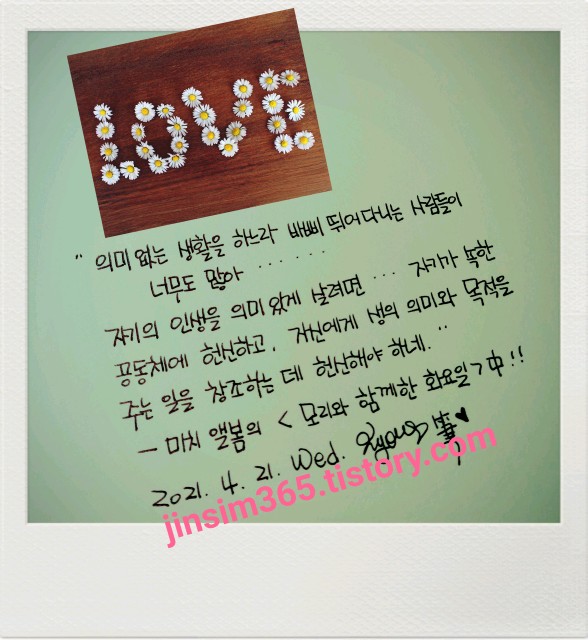 LOVE
" 의미 없는 생활을 하느라 바삐 뛰어다니는 사람들이
너무도 많아 . . . . . .
자기의 인생을 의미 있게 살려면 ... 자기가 속한
공동체에 헌신하고, 자신에게 생의 의미와 목적을
주는 일을 창조하는 데 헌신해야 하네. "
- 미치 앨봄의 < 모리와 함께한 화요일 > 中 !!
2021. 4. 21. Wed. 筆 ♥
jinsim365.tistory.com